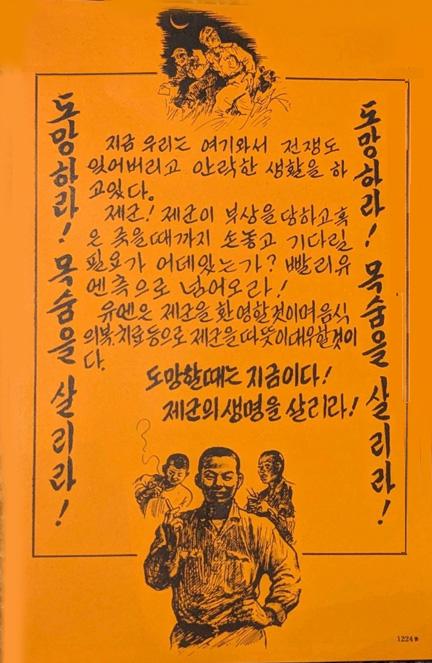 도망하라! 목숨을 살리라!
지금 우리는 여기와서 전쟁도
잊어버리고 안락한 생활을 하
고있다.
제군! 제군이 부상을 당하고 혹
은 죽을때까지 손놓고 기다릴
필요가 어데있는가? 빨리유
엔측으로 넘어오라!
유엔은 제군을 환영할것이며 음식
의복, 치료등으로 제군을 따뜻이 대우할것이
다.
도망할때는 지금이다!
제군의 생명을 살리라!
도망하라! 목숨을 살리라!
1224